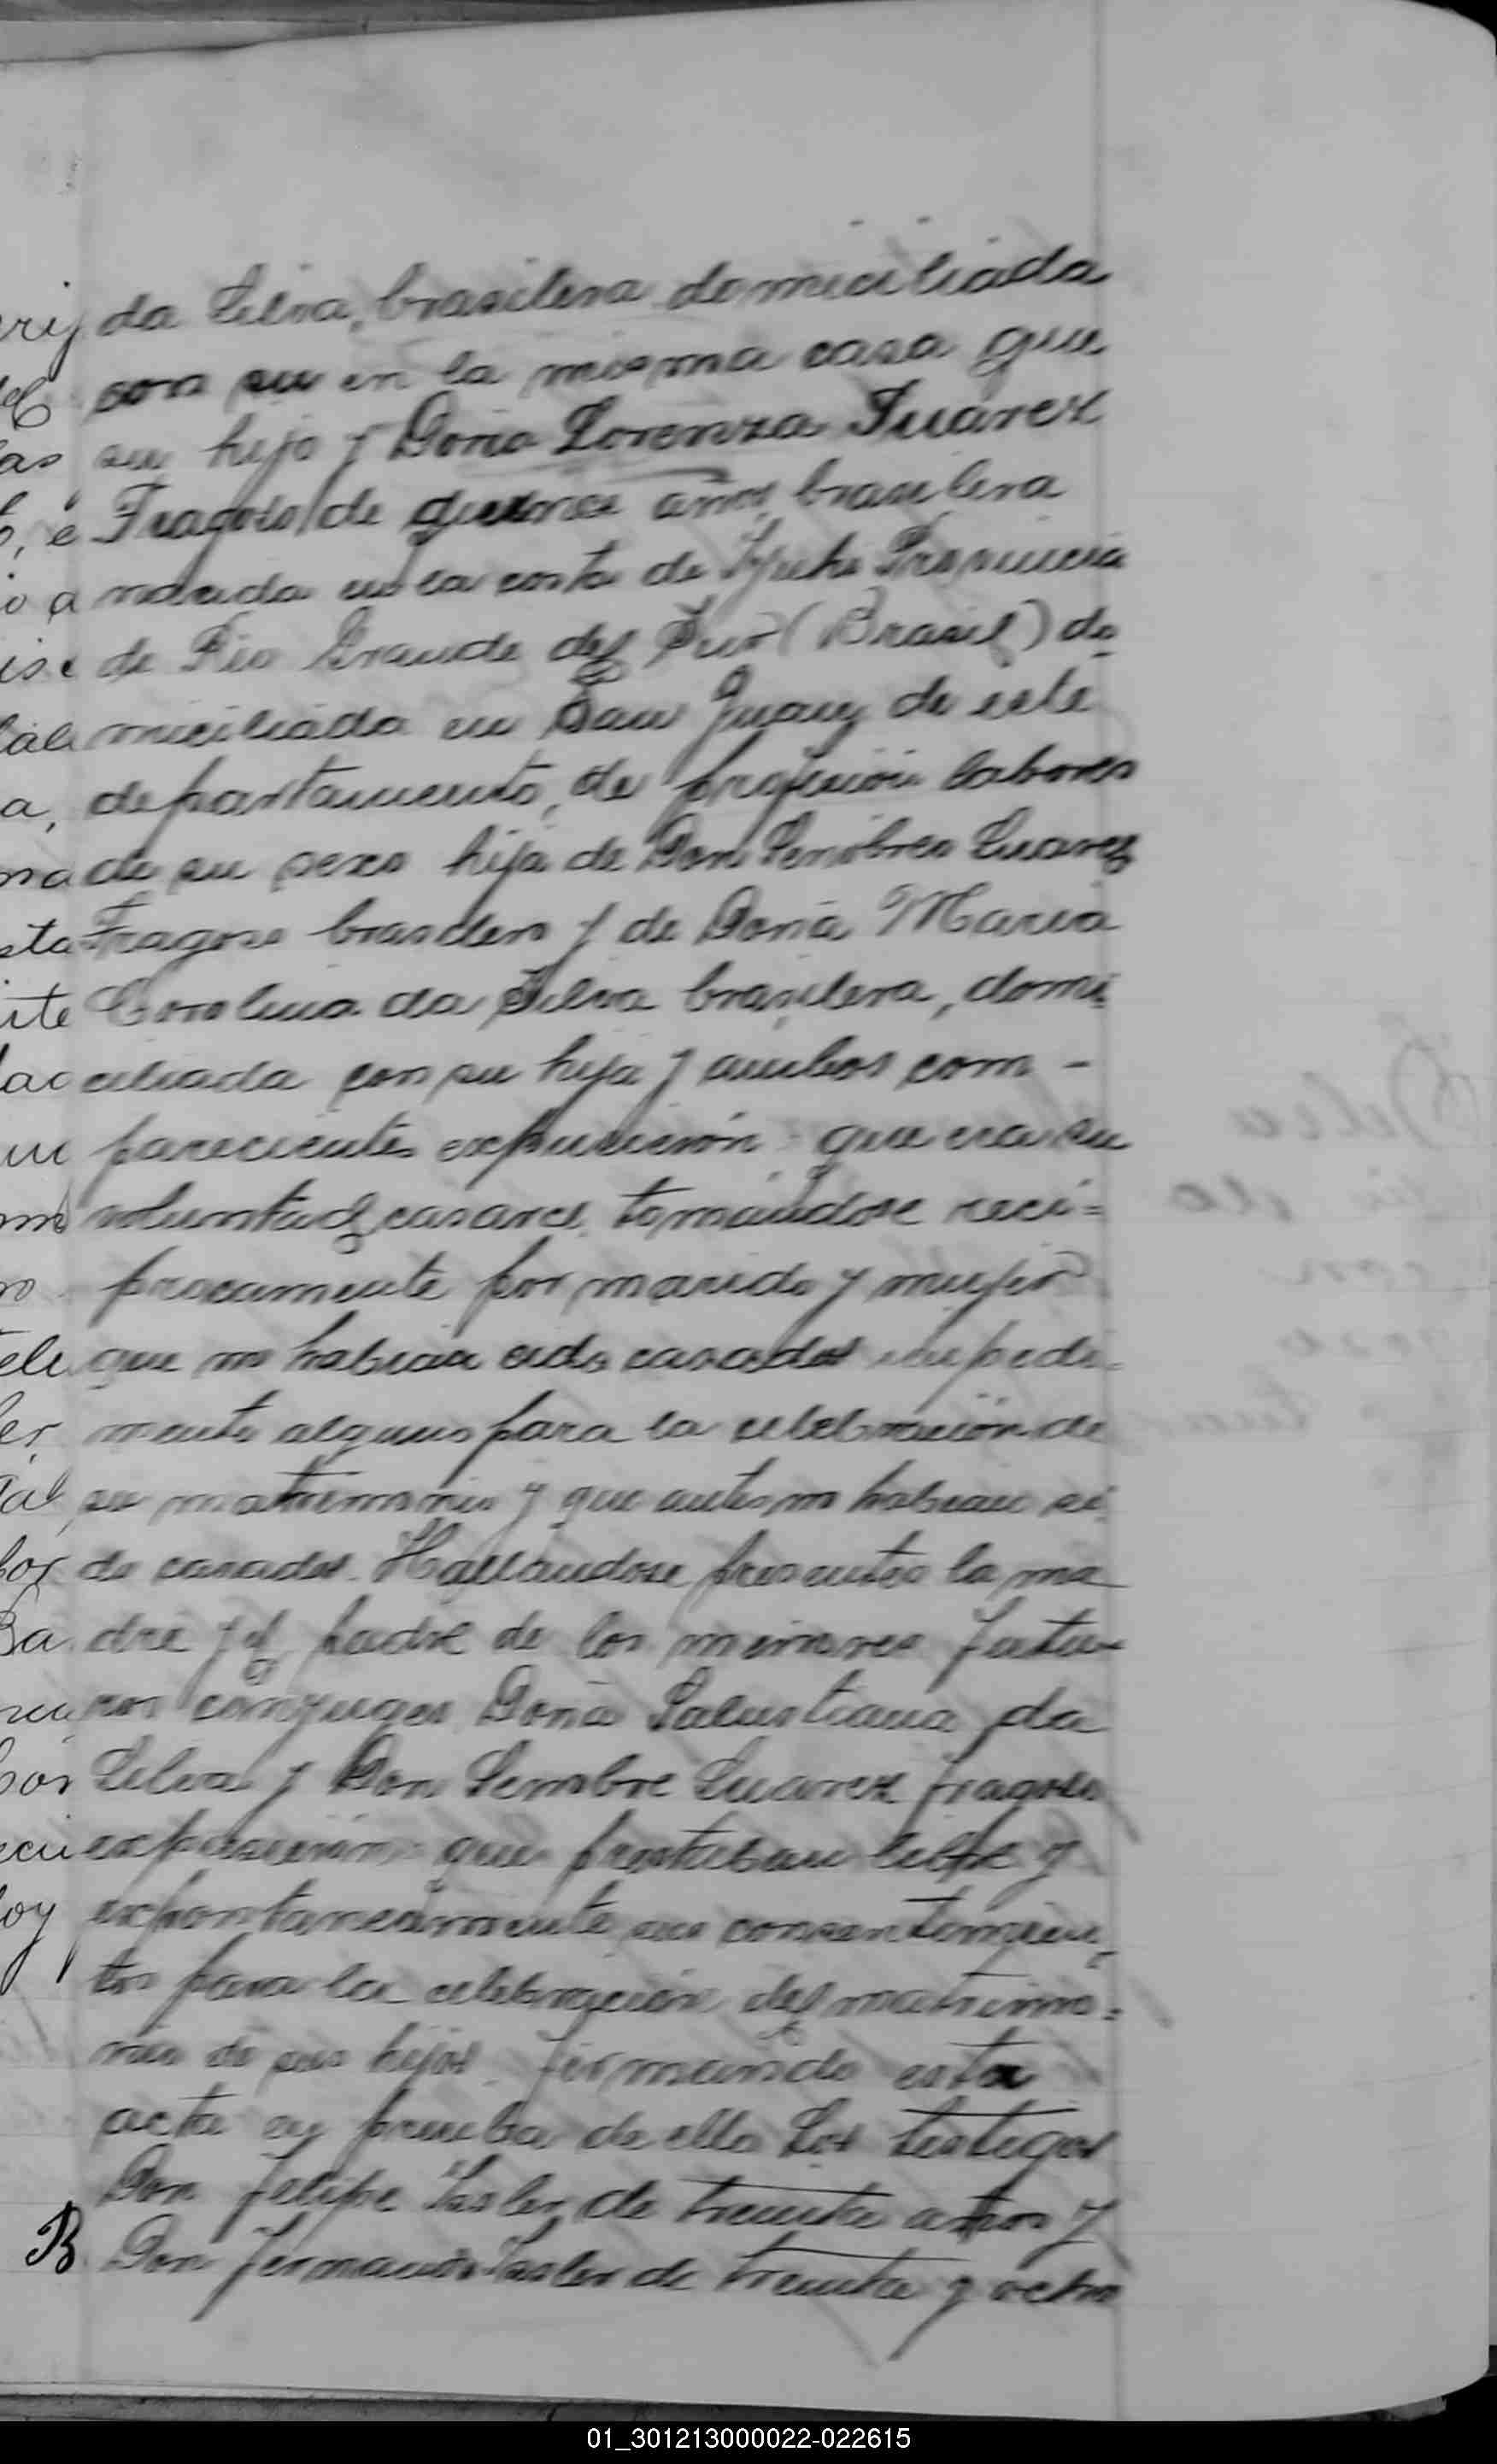 da Silva, brasilera domiciliada
con su en la misma casa que
su hijo y Doña Lorenza Suárez
Fragoso de quince años, brasilera
nacida en la costa de Provincia
de Rio Grande del Sur (Brasil) do
miciliada en San Juan de este
departamento, de profesión labores
de su sexo hija de Don Suarez
Fragoso brasilero y de Doña Maria
Carolina da Silva brasilera, domi
ciliada con su hija y ambos com -
parecientes expusieron que era su
voluntad casarse, tomándose reci=
procamente por marido y mujer
que no habian sido casados impedi=
mento alguno para la celebración de
su matrimonio y que antes no habian si
do casados. Hallandose presentes la ma
dre y el padre de los menores futu=
ros cónyuges Doña Salustiana da
Silva y Don Suarez Fragoso
expusieron que prestaban libre y
expontaneamente sus consentimien=
tos para la celebración del matrimo=
nio de sus hijos. firmando esta
acta en prueba de ello los testigos
Don Felipe de treinta años y
Don de treinta y ocho
B
01_301213000022-022615